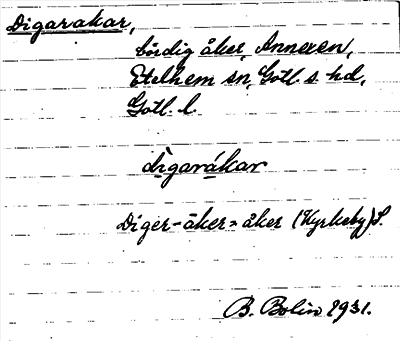 Digarakar,
bördig åker, Annexen,
Etelhem sn, Gotl. s. hd,
Gotl. l.
digarákar
Diger-åker > åker (Kyrkeby) S.
B. Bolin 1931.